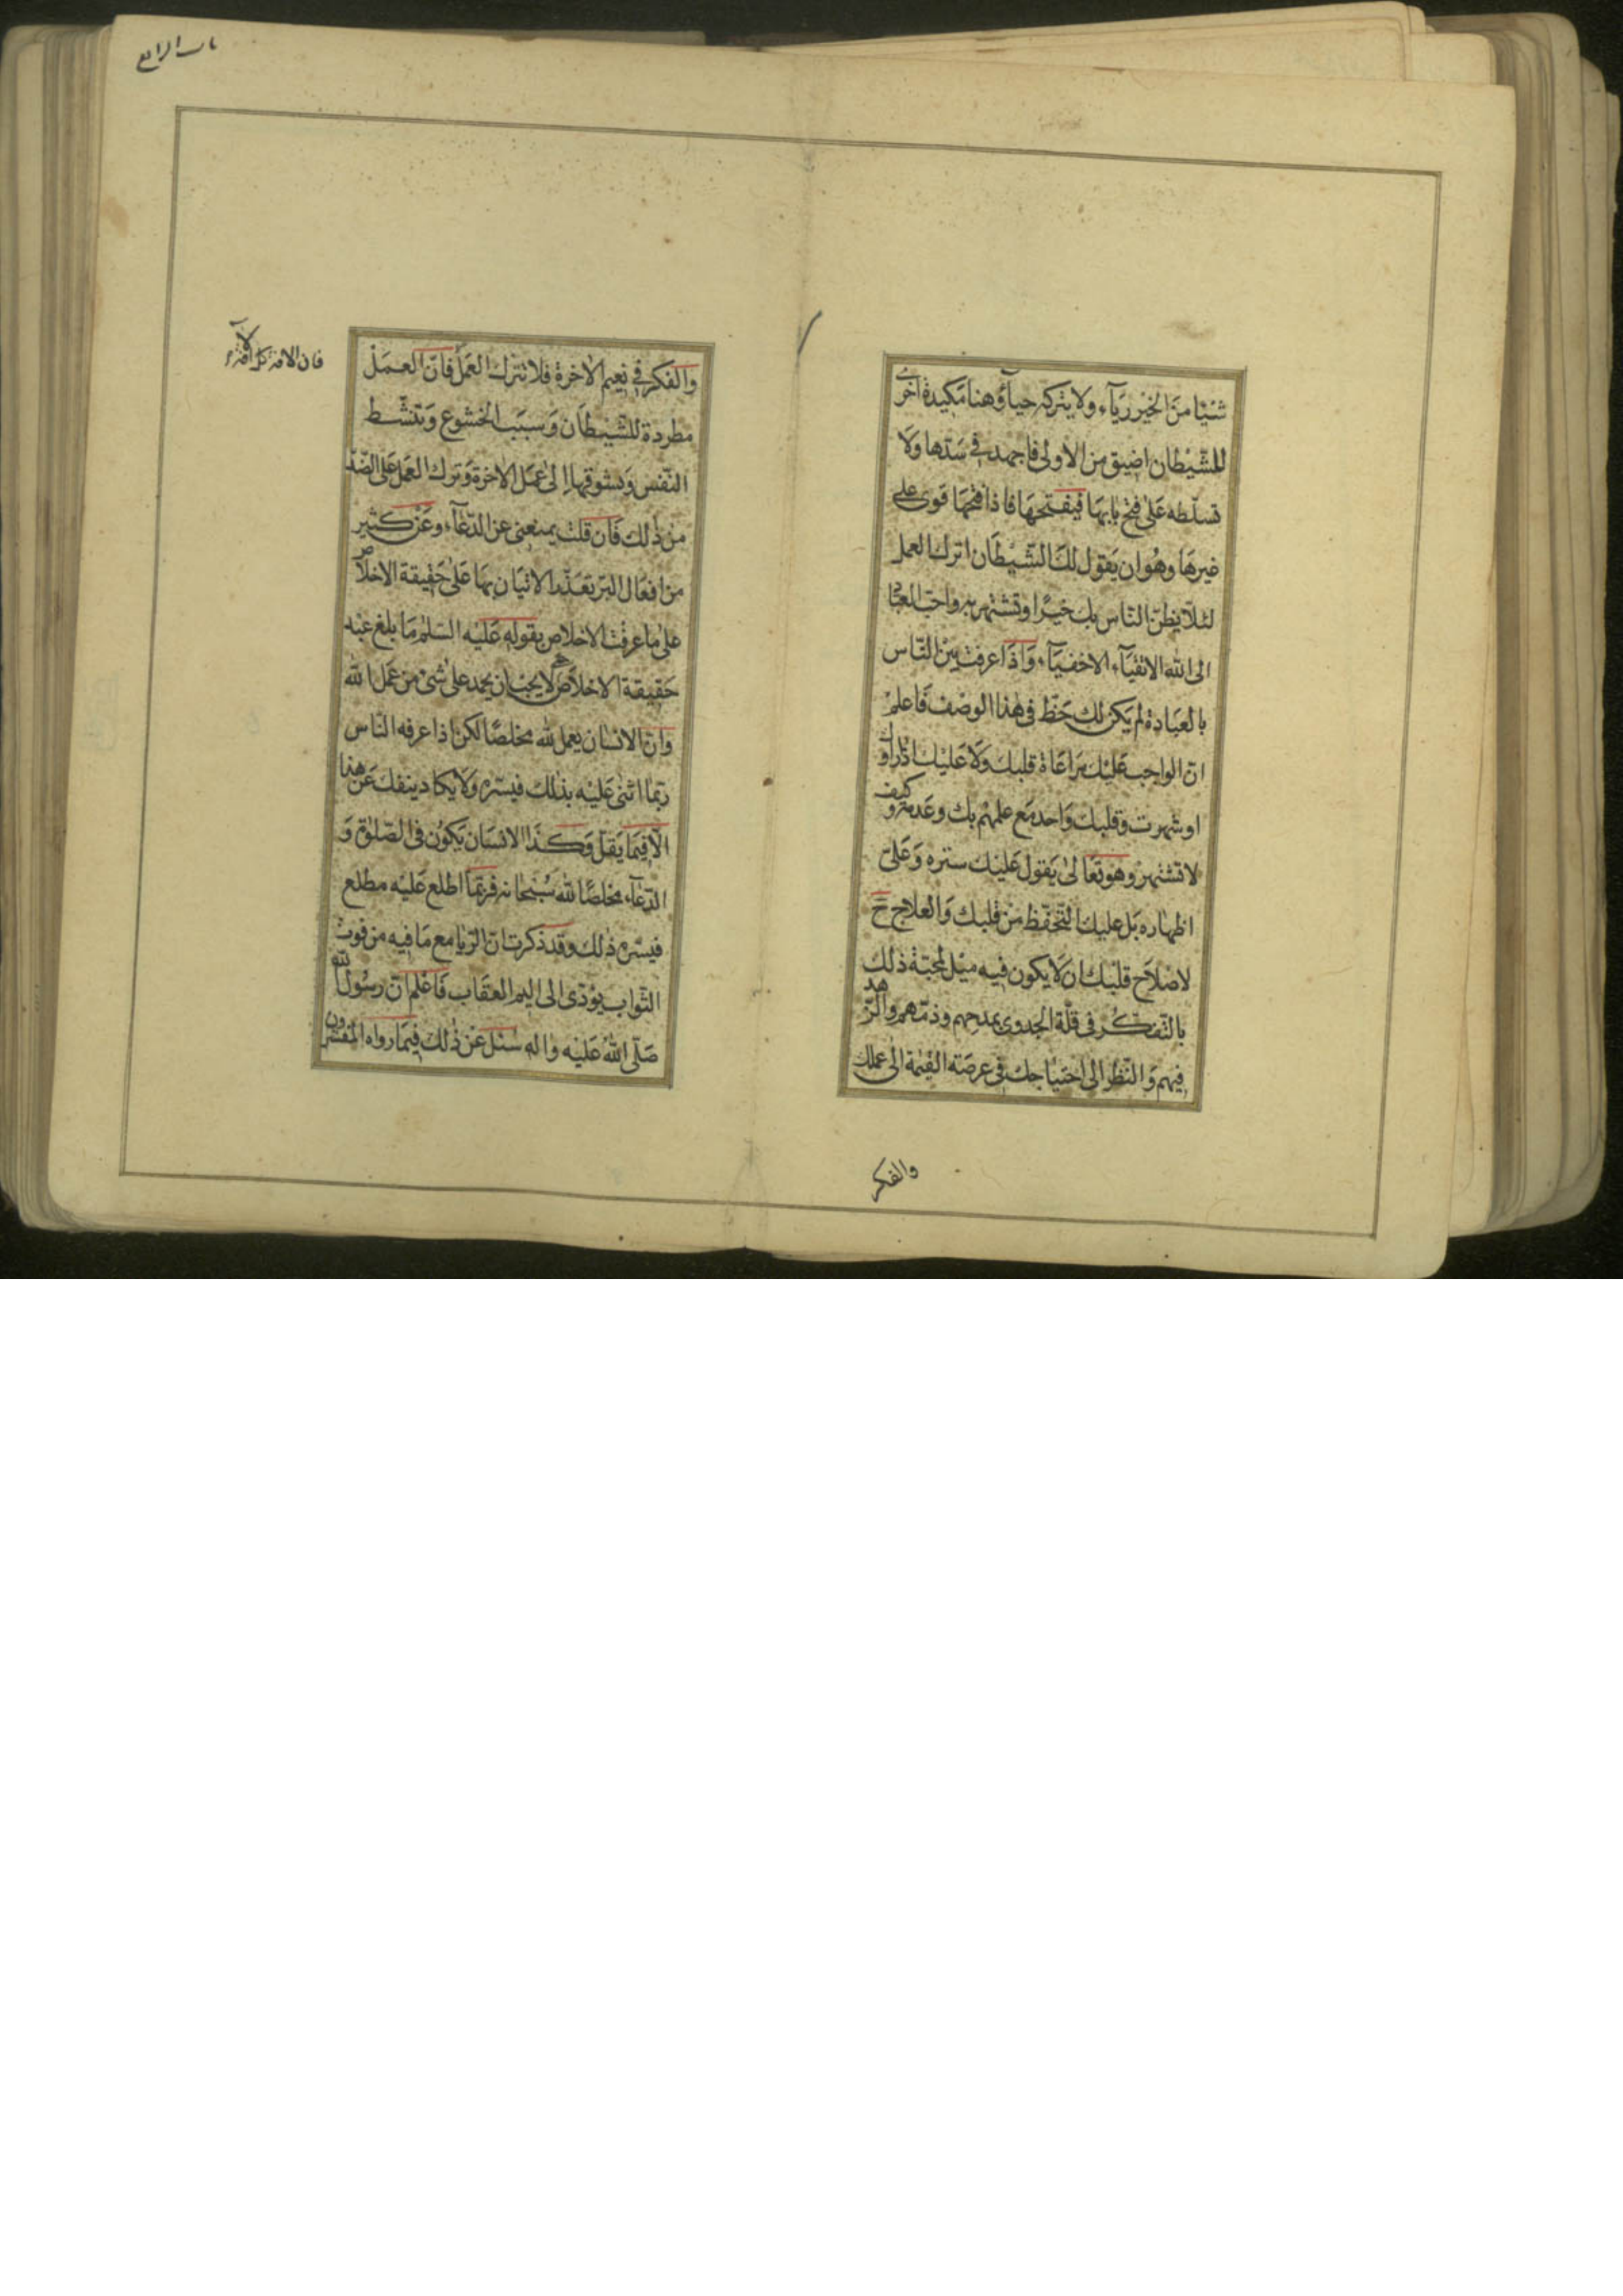 شيئا من الخير رياء ولا يتركه حياء وهنا مكيدة اخرى
للشيطان اضيق من الاولى فاجهد في سدها ولا
تسلطه على فتح بابها فيفتحها فاذا فتحها قوى على
غيرها وهو ان يقول لك الشيطان اترك العمل
لئلا يظن الناس بك خيرا وتشتهر به واحب العباد
الى الله الاتقياء الاخفياء واذا عرفت بين الناس
بالعبادة لم يكن لك حظ في هذا الوصف فاعلم
ان الواجب عليك مراعاة قلبك ولا عليك اذا
او شهرت وقلبك واحد مع علمهم بك وعدمه وكيف
لا تشتهر وهو تعالى يقول عليك ستره وعلى
اظهاره بل عليك التحفظ من قلبك والعلاج ح
لاصلاح قلبك ان لا يكون فيه ميل لمحبة ذلك
بالتفكر في قلة الجدوى بمدحهم وذمهم والزهد
فيهم والنظر الى احتياجك في عرصة القيمة الى عملك
والفكر
باب الرابع
والفكر في نعيم الاخرة فلا تترك العمل فان العمل
مطردة للشيطان وسبب الخشوع وتنشط
النفس وتشوقها الى عمل الاخرة وترك العمل على الضد
من ذلك فان قلت يمنعني عن الدعاء وعن كثير
من افعال البر تعذر الاتيان بها على حقيقة الاخلاص
على ما عرفت الاخلاص بقوله عليه السلم ما بلغ عبد
حقيقة الاخلاص حتى لا يحب ان يحمد على شئ من عمل لله
وان الانسان يعمل لله مخلصا لكن اذا عرفه الناس
ربما اثنى عليه بذلك فيسره ولا يكاد ينفك عن هذا
الا فيما يقل وكذا الانسان يكون في الصلوة و
الدعاء مخلصا لله سبحانه فربما اطلع عليه مطلع
فيسره ذلك وقد ذكرت ان الريا مع ما فيه من فوت
الثواب يؤدى الى اليم العقاب فاعلم ان رسول الله
صلى الله عليه واله سئل عن ذلك فيما رواه المفسرون